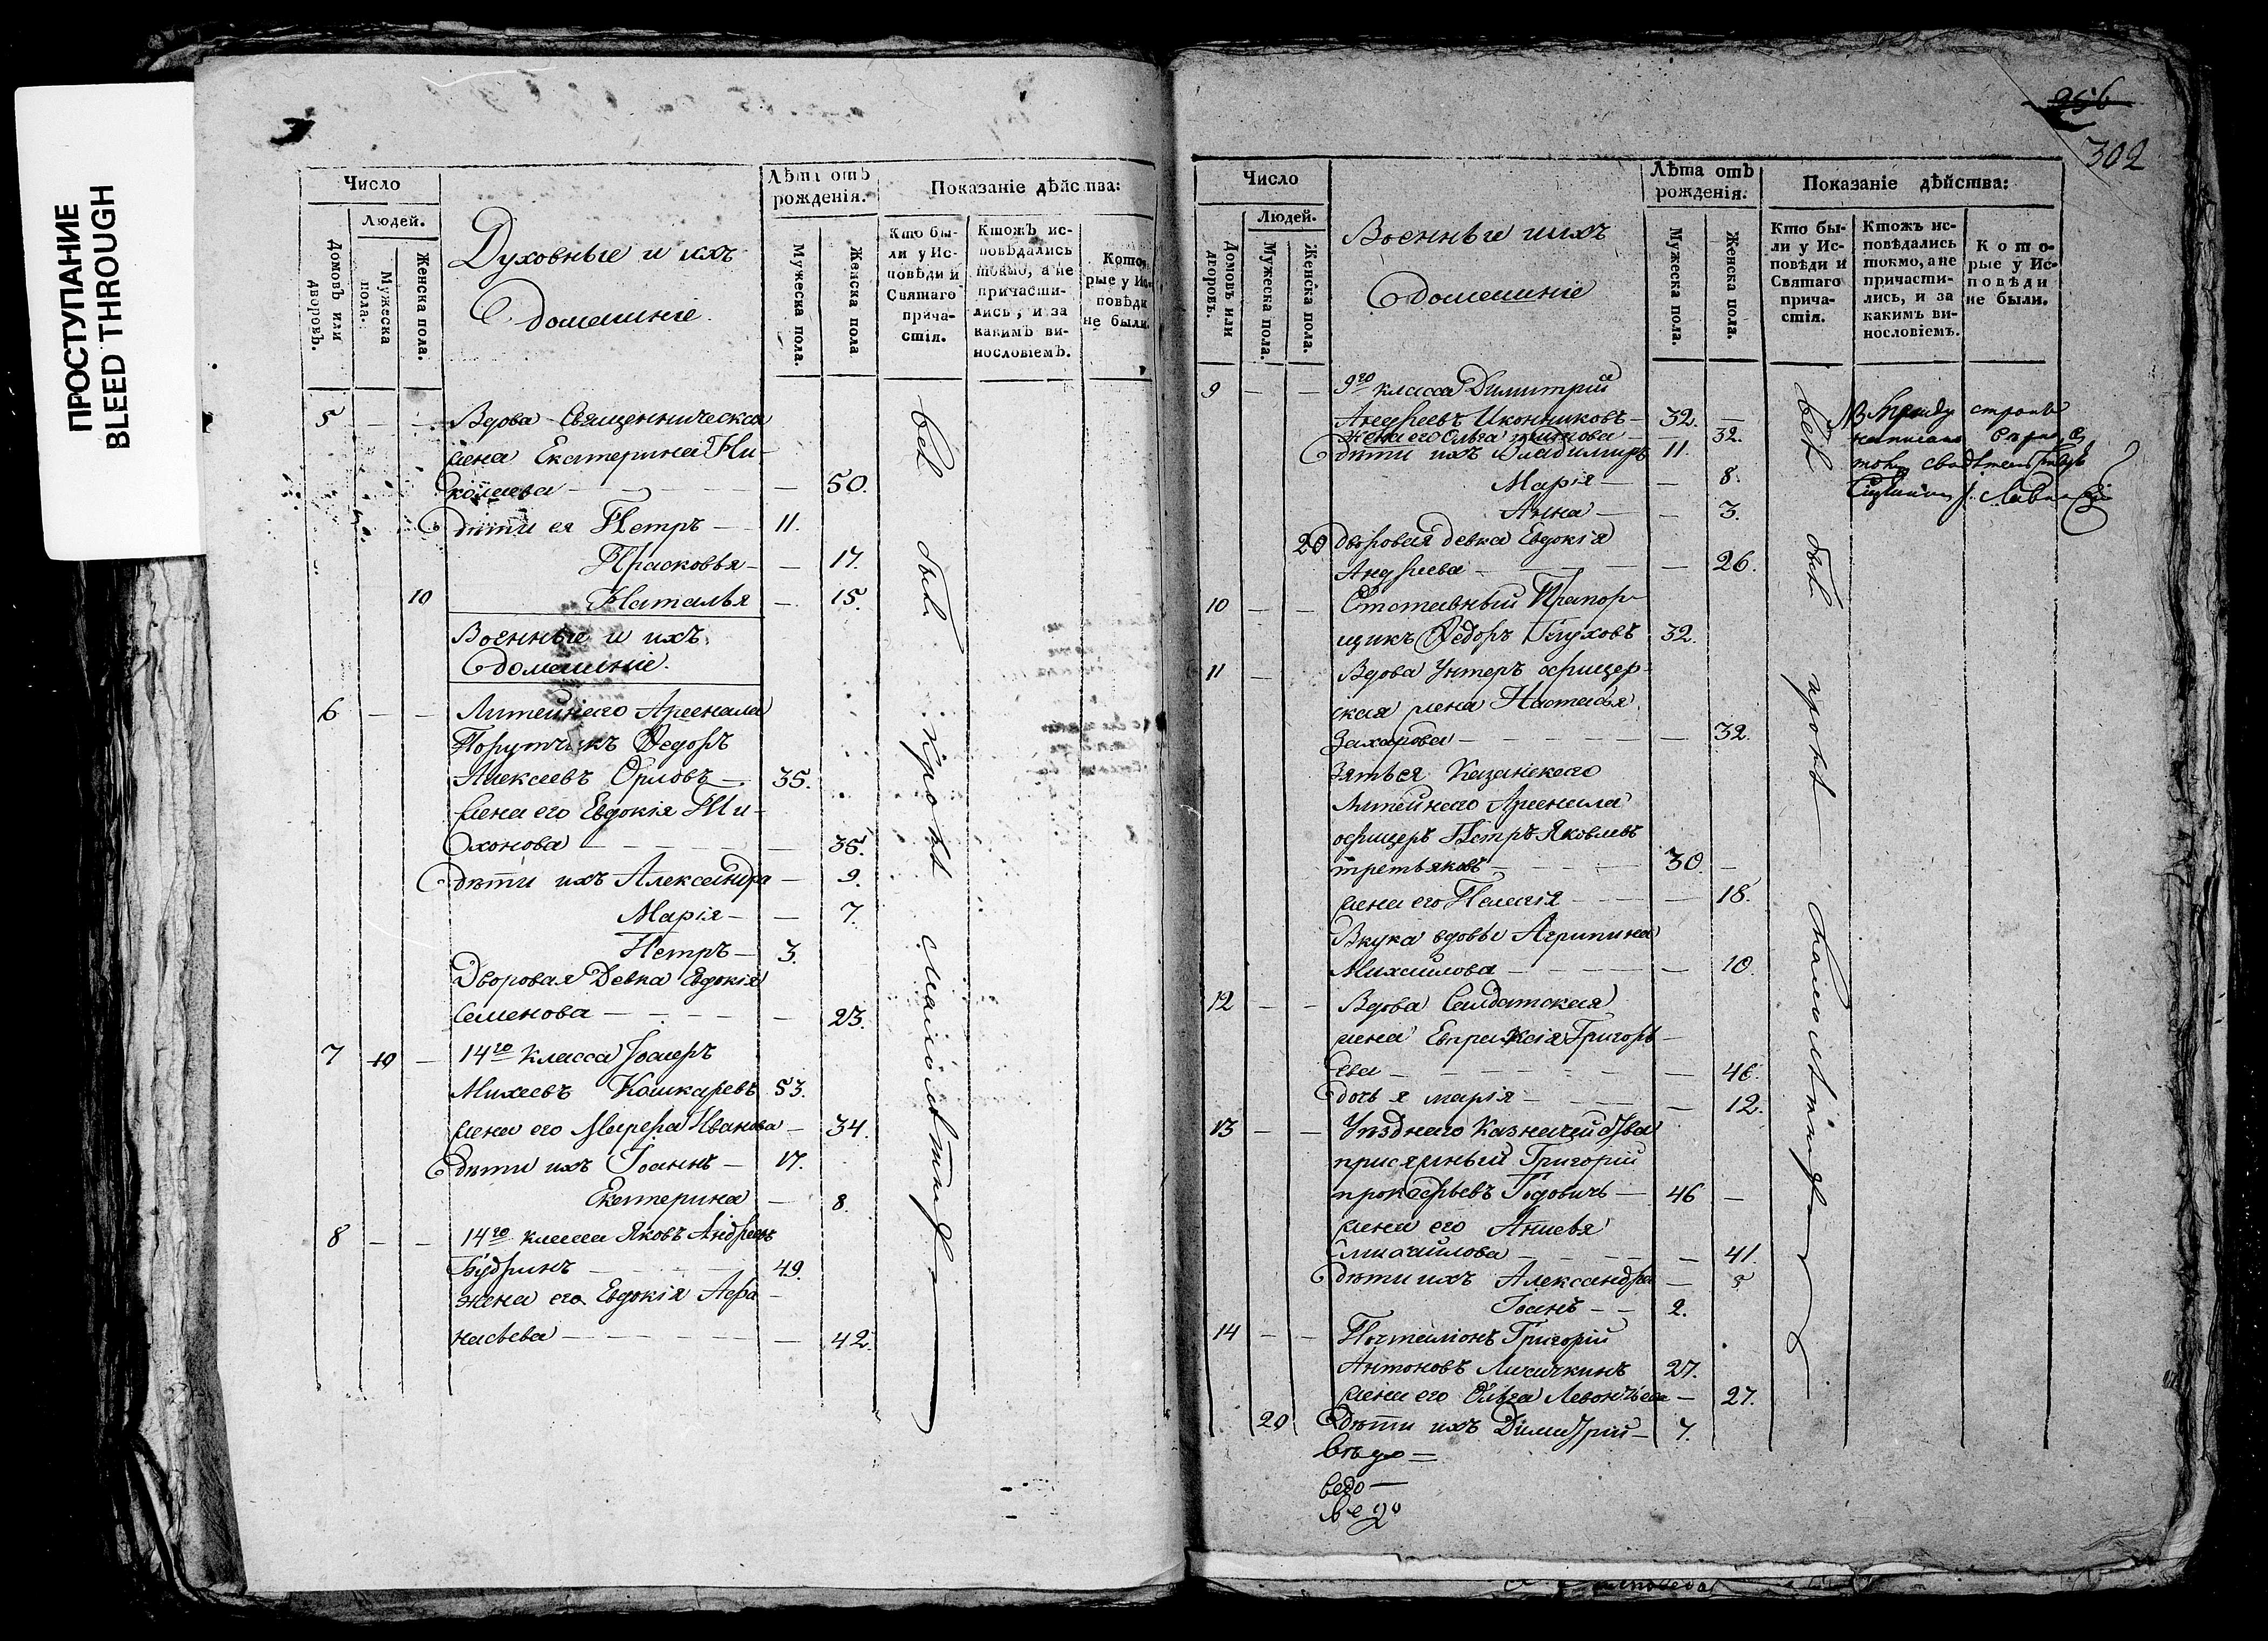 ПРОСТУПАНИЕ
BLEED THROUGH
Число
Людей.
Домовъ или дворовъ.
Мужеска пола.
Женска пола.
Духовные и ихъ
домашніе.
Лѣта отъ рожденія.
Мужеска пола.
Женска пола
Показаніе дѣйства:
Кто были у Исповѣди и Святаго причастія.
Ктожъ исповѣдались токмо, а не причастились, и за какимъ винословіемъ.
Которые у Исповѣди не были.
5 — — Вдова Священническая
жена Екатерина Ни-
колаева — — 50.
дѣти ея Петръ — 11.
Прасковья — — 17.
10 Наталья — 15.
Военные и ихъ
домашніе.
6 — — Литейнаго Арсенала
Порутчикъ Федоръ
Алексеевъ Орловъ — 35.
жена его Евдокія Ти-
хонова — — 35.
дѣти ихъ Александра — 9.
Марія — — 7.
Петръ — 3.
Дворовая Девка Евдокія
Семенова — — 23.
7 10 — 14го класса
Михеевъ Кошкаревъ 53.
жена его Иванова — 34.
дѣти ихъ Іоаннъ — 17.
Екатерина — 8.
8 — — 14го класса Яковъ Андреевъ
Будринъ — 49.
жена его Евдокія Афа-
насьева — — 42.
всѣ были кромѣ малолѣтныхъ
256
302
Число
Людей.
Домовъ или дворовъ.
Мужеска пола.
Женска пола.
Военные и ихъ
домашніе
Лѣта отъ рожденія.
Мужеска пола.
Женска пола.
Показаніе дѣйства:
Кто были у Исповѣди и Святаго причастія.
Ктожъ исповѣдались токмо, а не причастились, и за какимъ винословіемъ.
Которые у Исповѣди не были.
9 — — 9го класса Димитрій
Андреевъ Иконниковъ — 32. —
жена его Ольга — 32.
дѣти ихъ Владимиръ 11.
Марія — — 8.
Анна — — 3.
20 дворовая девка Евдокія
Андреева — — 26.
10 — — Отставный Прапор-
щикъ Федоръ Глуховъ 32.
11 — Вдова Унтеръ офицер-
ская жена Настасья
Захарова — — 32.
Зятья Казанскаго
Литейнаго Арсенала
офицеръ Петръ Яковлевъ
третьяковъ — 30. —
жена его Пелагія — — 18.
Внука вдовы Агрипина
Михайлова — — 10.
12 — — Вдова Салдатская
жена Евпраксія Григорь-
ева — — 46.
дочь я марія — — 12.
13 — — Уѣзднаго Казначейства
присяжный Григорій
прокофьевъ — 46 —
жена его Анисья
михайлова — — 41.
дѣти ихъ Александра — 5
Іоанъ — 2.
14 — — Почталіонъ Григорій
Антоновъ Лисичкинъ 27.
жена его Ольга Левонтьева — 27.
20 дѣти ихъ Димитрій — 7.
всѣ были кромѣ малолѣтныхъ